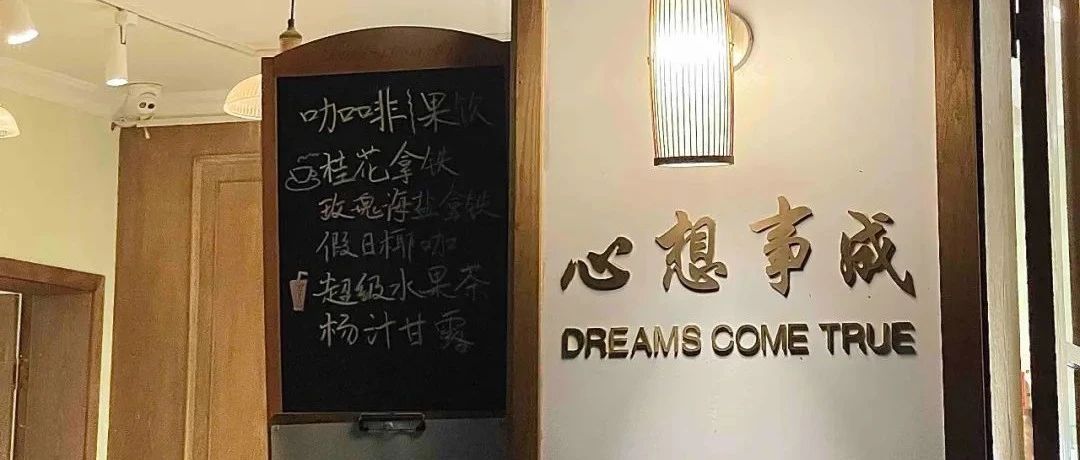 咖啡果饮
桂花拿铁
玫瑰海盐拿铁
假日椰咖
超级水果茶
杨汁甘露
心想事成
DREAMS COME TRUE